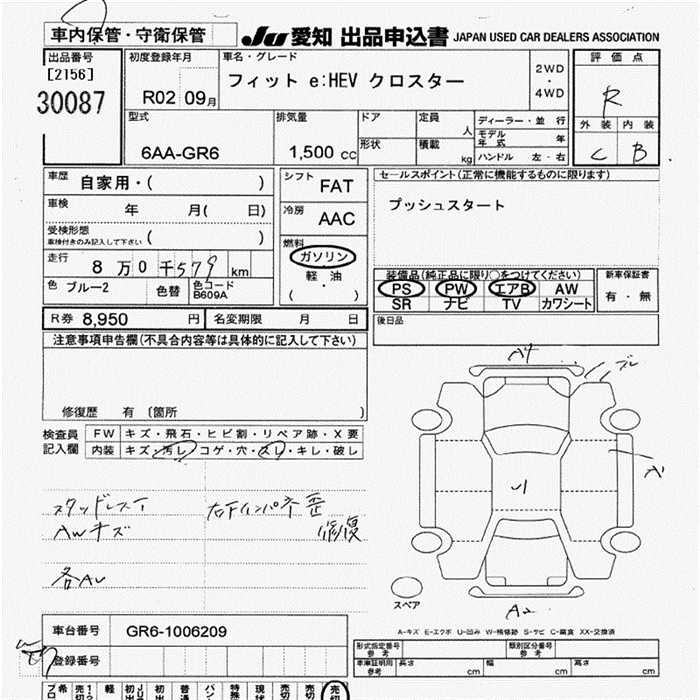 車内保管・守衛保管 JU 愛知 出品申込書 JAPAN USED CAR DEALERS ASSOCIATION
出品番号
[2156]
30087
初度登録年月
R02 09月
車名・グレード
フィット e:HEV クロスター
2WD
・
4WD
評価点
R
外装 内装
C B
型式
6AA-GR6
排気量
1,500 cc
ドア
形状
定員 人
積載 kg
ディーラー・並 行
モデル年式 年
ハンドル 左・右
車歴 自家用・( )
車検 年 月( 日)
受検形態
車検付きのみ記入して下さい ( )
走行 8 万 0 千 579 km
色 ブルー2 色替 色コード
B609A
シフト FAT
冷房 AAC
燃料
ガソリン
軽・油
( )
セールスポイント(正常に機能するものに限ります)
プッシュスタート
装備品(純正品に限り○をつけてください)
PS PW エアB AW
SR ナビ TV カワシート
新車保証書
有・無
後日品
R券 8,950 円 名変期限 月 日
注意事項申告欄(不具合内容等は具体的に記入して下さい)
修復歴 有 〔箇所 〕
検査員
記入欄
FW キズ・飛石・ヒビ割・リペア跡・X要
内装 キズ・汚レ・コゲ・穴・スレ・キレ・破レ
スタッドレス
AWキズ
各AU
右下インパネ歪
修復
A4
ブレ
A1
A2
スペア
A-キズ E-エクボ U-凹み W-補修跡 S-サビ C-腐食 XX-交換済
車台番号 GR6-1006209
登録番号
形式指定番号
参考
類別区分番号
参考
車庫証明用
参考
長さ cm 幅 cm 高さ cm